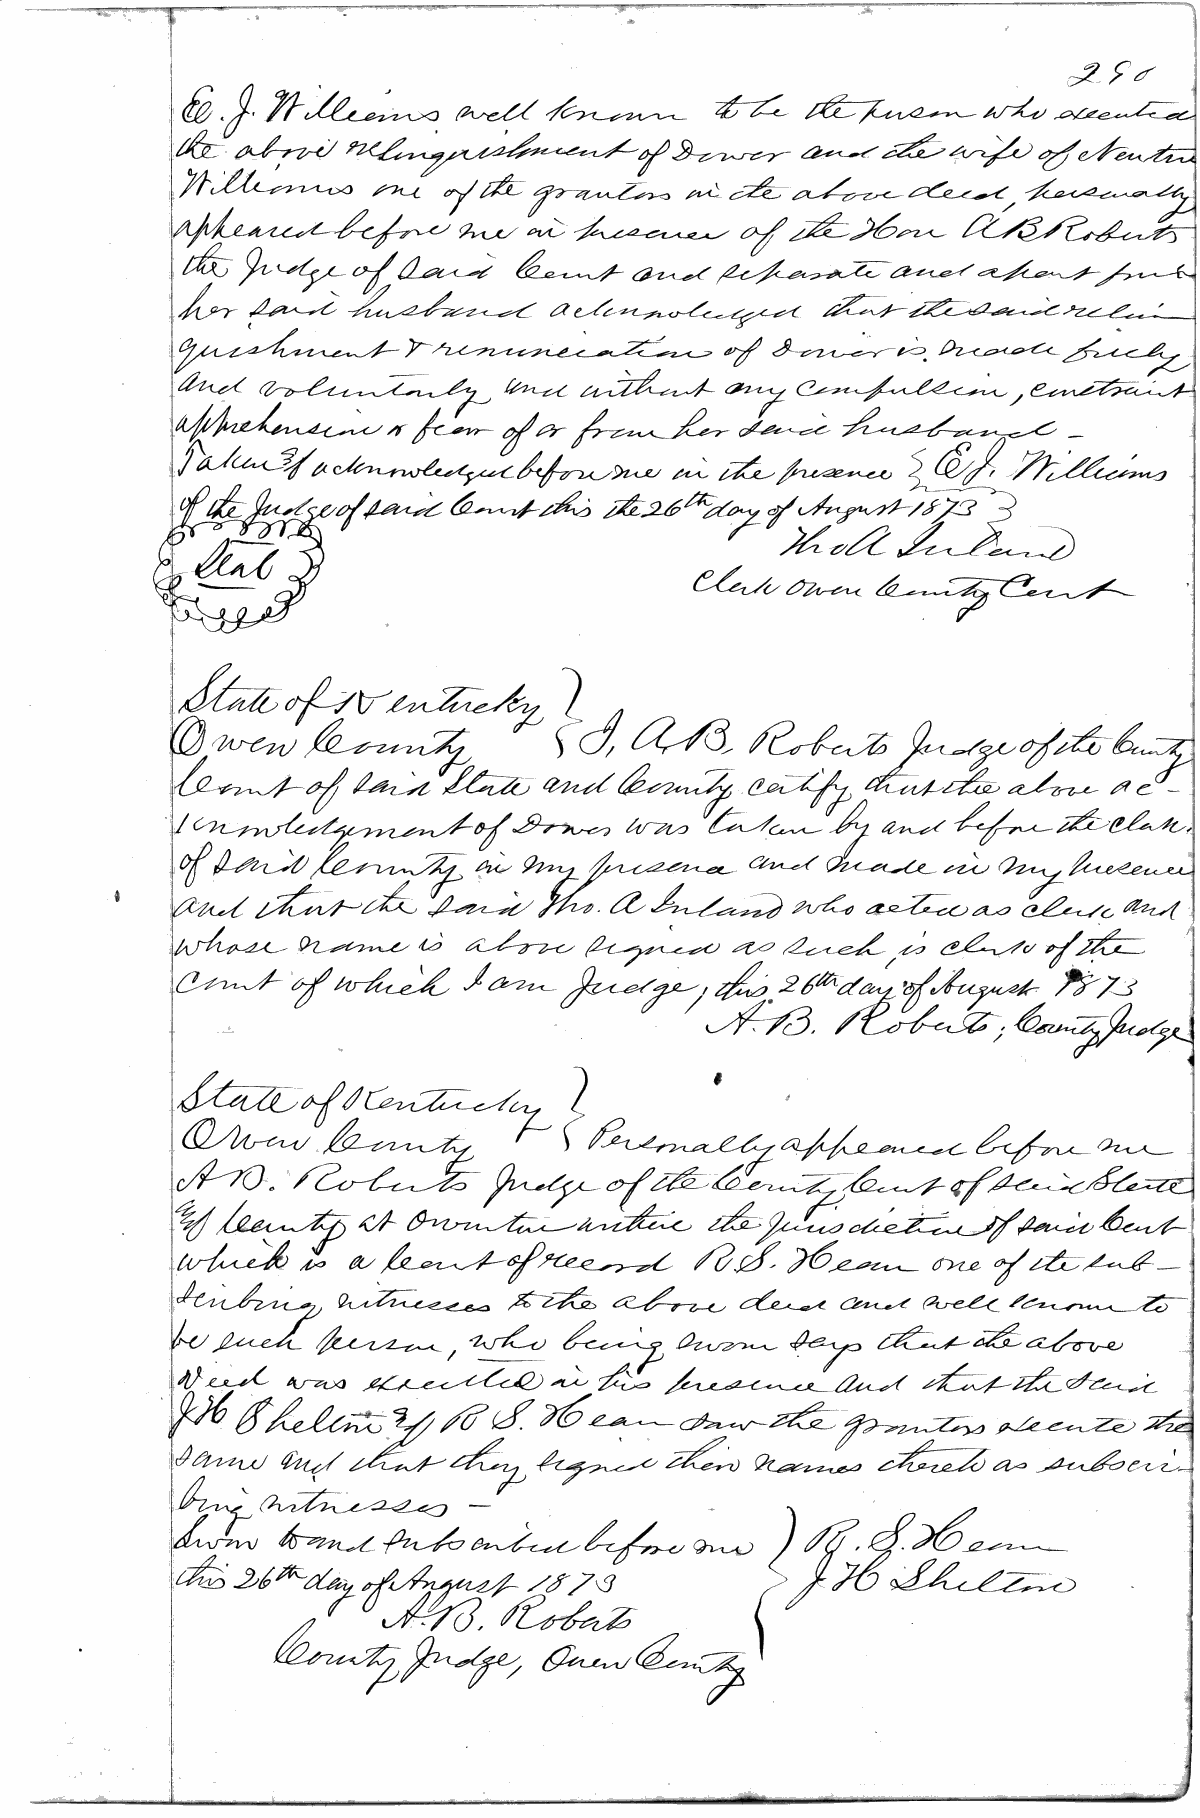 290
E. J. Williams well known to be the person who executed
the above relinquishment of Dower and the wife of Newton
Williams one of the grantors in the above deed, personally
appeared before me in presence of the Hon A B Roberts
the Judge of Said Court and separate and apart from
her said husband acknowledged that the said relin
quishment & renunciation of Dower is made freely
and voluntarily and without any compulsion, constraint
apprehension or fear of or from her said husband -
Taken & acknowledged before me in the presence } E J. Williams
of the Judge of said Court this the 26th day of August 1873 }
Seal
Tho A Inland
Clerk Owen County Court
State of Kentucky }
Owen County } I, A. B. Roberts Judge of the County
Court of said State and County certify that the above ac-
knowledgement of Dower was taken by and before the Clerk
of said County in my presence and made in my presence
and that the said Tho. A Inland who acted as clerk and
whose name is above signed as such, is clerk of the
court of which I am Judge, this 26th day of August 1873
A. B. Roberts, County Judge
State of Kentucky }
Owen County } Personally appeared before me
A B. Roberts Judge of the County Court of said State
& County at Owenton within the jurisdiction of said Court
which is a court of record R. S. Hearn one of the sub-
scribing witnesses to the above deed and well known to
be such person, who being sworn says that the above
Deed was executed in his presence and that the said
J H Shelton & R S. Hearn saw the grantors execute the
same and that they signed their names thereto as subscri-
bing witnesses -
Sworn to and subscribed before me } R. S. Hearn
this 26th day of August 1873 J H Shelton
A. B. Roberts
County Judge, Owen County